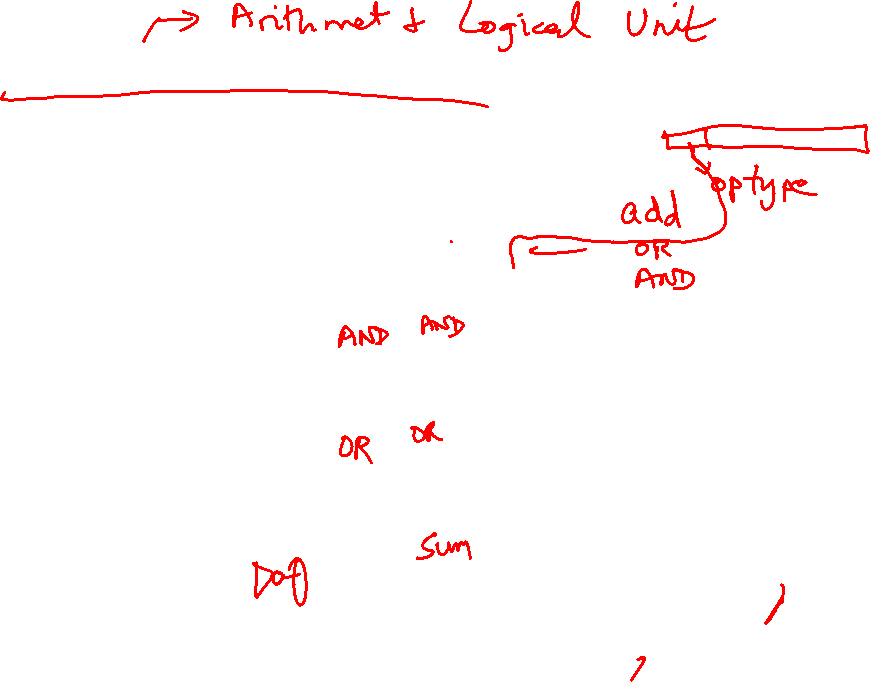 → Arithmet & Logical Unit
optype
add
OR
AND
AND AND
OR OR
Sum